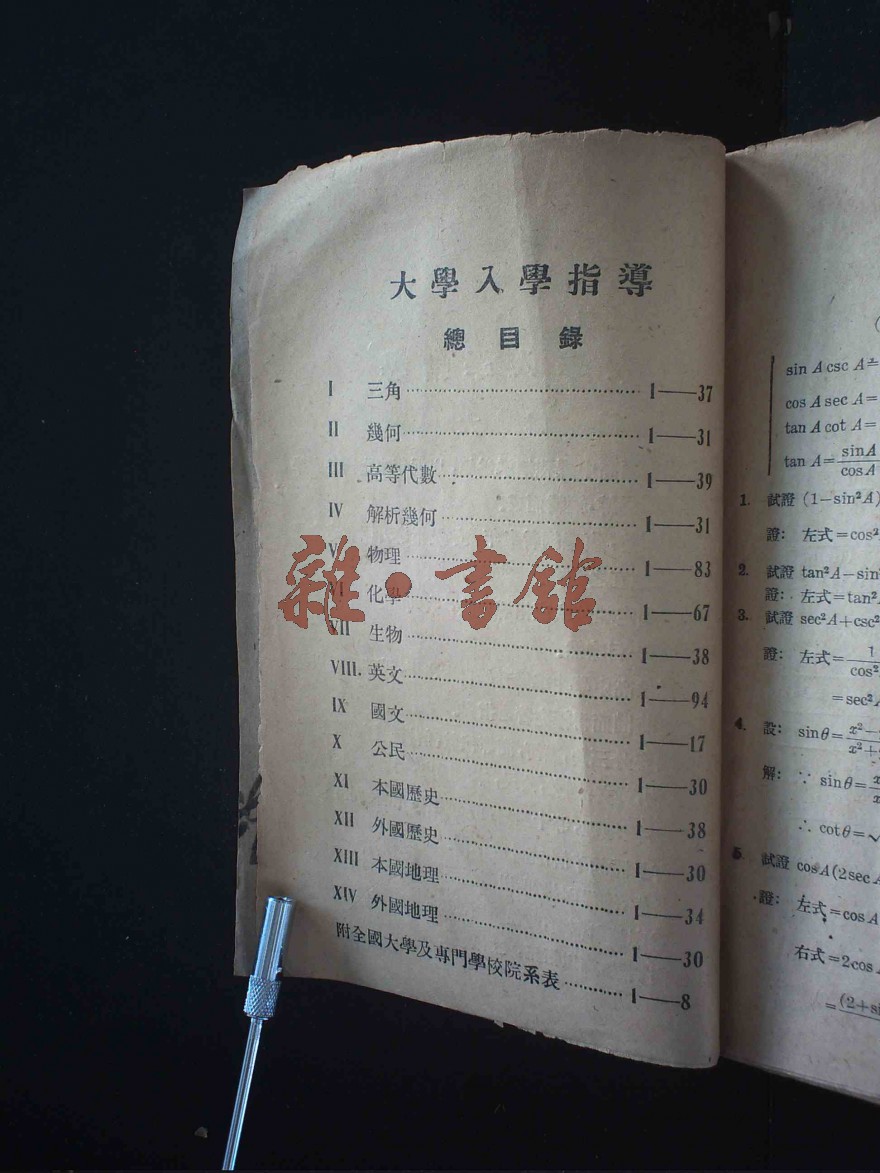 大學入學指導
總目錄
I 三角 1——37
II 幾何 1——31
III 高等代數 1——39
IV 解析幾何 1——31
V 物理 1——83
VI 化學 1——67
VII 生物 1——38
VIII. 英文 1——94
IX 國文 1——17
X 公民 1——30
XI 本國歷史 1——38
XII 外國歷史 1——30
XIII 本國地理 1——34
XIV 外國地理 1——30
附全國大學及專門學校院系表 1——8
雜·書館
sin A csc A=
cos A sec A=
tan A cot A=
tan A=sinA/cosA
1. 試證 (1—sin²A)
證: 左式=cos²
2. 試證 tan²A—sin²
證: 左式=tan²
3. 試證 sec²A+csc²
證: 左式=1/cos²
=sec²
4. 設: sinθ=
解: ∵ sinθ=
∴ cotθ=√
5. 試證 cosA(2sec
證: 左式=cosA
右式=2cos
=(2+si